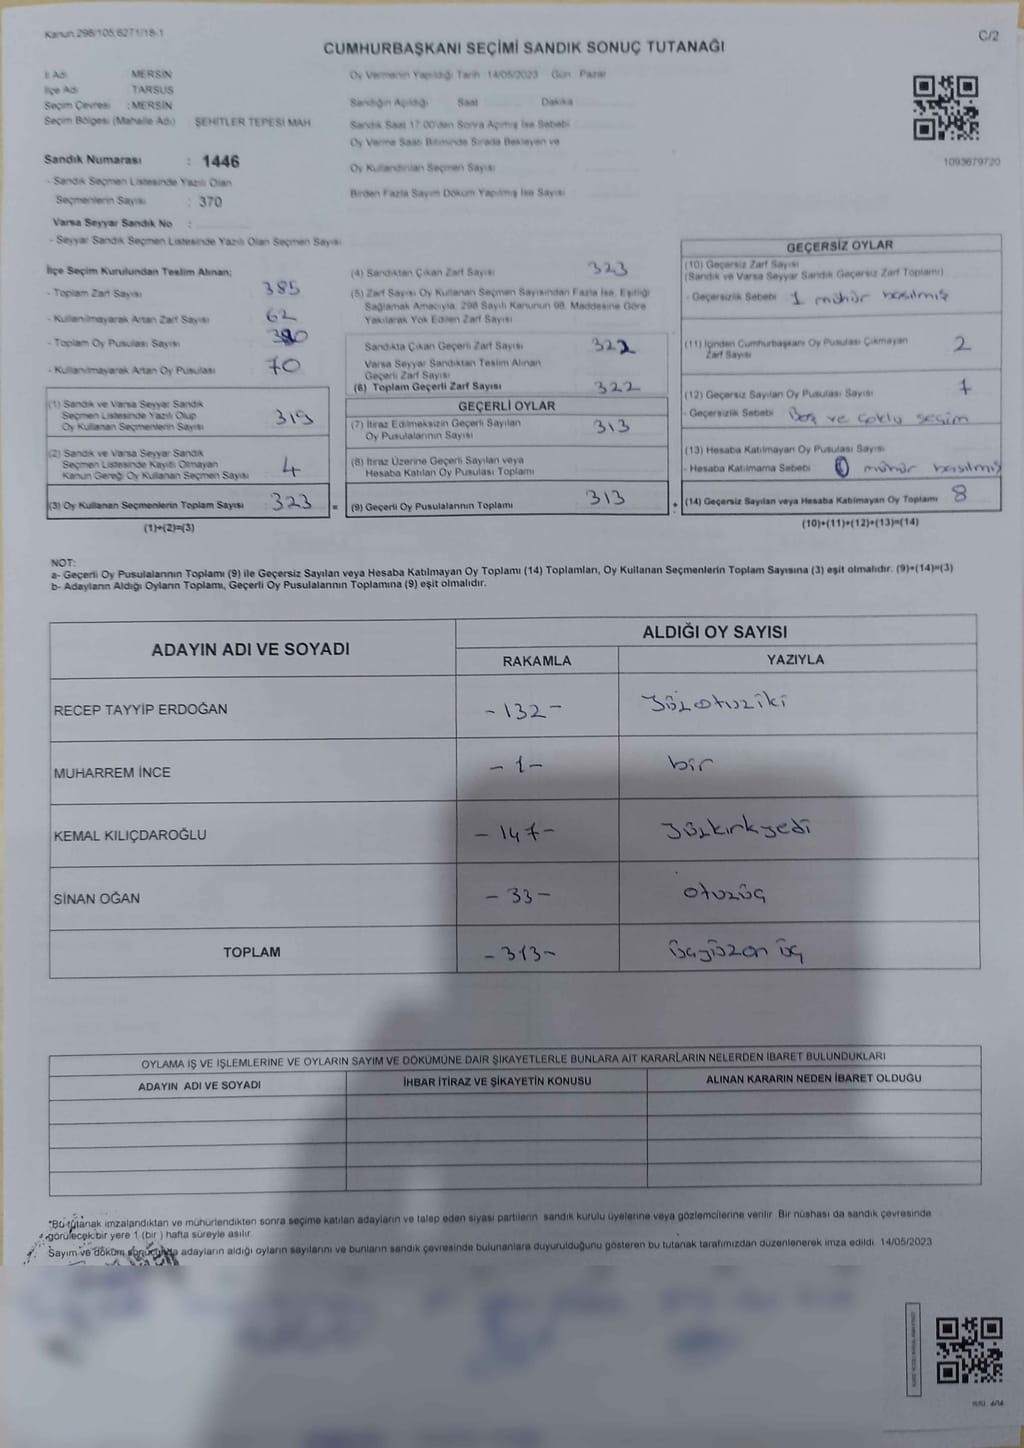 Kanun 298/105,6271/18-1
C/2
CUMHURBAŞKANI SEÇİMİ SANDIK SONUÇ TUTANAĞI
İl Adı MERSİN
İlçe Adı TARSUS
Seçim Çevresi : MERSİN
Seçim Bölgesi (Mahalle Adı) ŞEHİTLER TEPESİ MAH
Sandık Numarası : 1446
- Sandık Seçmen Listesinde Yazılı Olan
Seçmenlerin Sayısı : 370
Varsa Seyyar Sandık No :
- Seyyar Sandık Seçmen Listesinde Yazılı Olan Seçmen Sayısı
Oy Vermenin Yapıldığı Tarih 14/05/2023 Gün Pazar
Sandığın Açıldığı Saat Dakika
Sandık Saat 17:00'den Sonra Açılmış İse Sebebi
Oy Verme Saati Bitiminde Sırada Bekleyen ve
Oy Kullandırılan Seçmen Sayısı
Birden Fazla Sayım Döküm Yapılmış İse Sayısı
1093679720
İlçe Seçim Kurulundan Teslim Alınan;
- Toplam Zarf Sayısı 385
- Kullanılmayarak Artan Zarf Sayısı 62
- Toplam Oy Pusulası Sayısı
- Kullanılmayarak Artan Oy Pusulası 70
(1) Sandık ve Varsa Seyyar Sandık
Seçmen Listesinde Yazılı Olup
Oy Kullanan Seçmenlerin Sayısı 319
(2) Sandık ve Varsa Seyyar Sandık
Seçmen Listesinde Kayıtlı Olmayan
Kanun Gereği Oy Kullanan Seçmen Sayısı 4
(3) Oy Kullanan Seçmenlerin Toplam Sayısı 323 =
(1)+(2)=(3)
(4) Sandıktan Çıkan Zarf Sayısı 323
(5) Zarf Sayısı Oy Kullanan Seçmen Sayısından Fazla İse, Eşitliği
Sağlamak Amacıyla, 298 Sayılı Kanunun 98. Maddesine Göre
Yakılarak Yok Edilen Zarf Sayısı
Sandıkta Çıkan Geçerli Zarf Sayısı 322
Varsa Seyyar Sandıktan Teslim Alınan
Geçerli Zarf Sayısı
(6) Toplam Geçerli Zarf Sayısı 322
GEÇERLİ OYLAR
(7) İtiraz Edilmeksizin Geçerli Sayılan
Oy Pusulalarının Sayısı 313
(8) İtiraz Üzerine Geçerli Sayılan veya
Hesaba Katılan Oy Pusulası Toplamı
(9) Geçerli Oy Pusulalarının Toplamı 313 +
GEÇERSİZ OYLAR
(10) Geçersiz Zarf Sayısı
(Sandık ve Varsa Seyyar Sandık Geçersiz Zarf Toplamı)
- Geçersizlik Sebebi 1 mühür basılmış
(11) İçinden Cumhurbaşkanı Oy Pusulası Çıkmayan
Zarf Sayısı 2
(12) Geçersiz Sayılan Oy Pusulası Sayısı
- Geçersizlik Sebebi Boş ve çoklu seçim
(13) Hesaba Katılmayan Oy Pusulası Sayısı
- Hesaba Katılmama Sebebi mühür basılmış
(14) Geçersiz Sayılan veya Hesaba Katılmayan Oy Toplamı 8
(10)+(11)+(12)+(13)=(14)
NOT:
a- Geçerli Oy Pusulalarının Toplamı (9) ile Geçersiz Sayılan veya Hesaba Katılmayan Oy Toplamı (14) Toplamları, Oy Kullanan Seçmenlerin Toplam Sayısına (3) eşit olmalıdır. (9)+(14)=(3)
b- Adayların Aldığı Oyların Toplamı, Geçerli Oy Pusulalarının Toplamına (9) eşit olmalıdır.
ADAYIN ADI VE SOYADI
ALDIĞI OY SAYISI
RAKAMLA YAZIYLA
RECEP TAYYİP ERDOĞAN -132- yüzotuziki
MUHARREM İNCE -1- bir
KEMAL KILIÇDAROĞLU -147- yüzkırkyedi
SİNAN OĞAN -33- otuzüç
TOPLAM -313- üçyüzon üç
OYLAMA İŞ VE İŞLEMLERİNE VE OYLARIN SAYIM VE DÖKÜMÜNE DAİR ŞİKAYETLERLE BUNLARA AİT KARARLARIN NELERDEN İBARET BULUNDUKLARI
ADAYIN ADI VE SOYADI İHBAR İTİRAZ VE ŞİKAYETİN KONUSU ALINAN KARARIN NEDEN İBARET OLDUĞU
*Bu tutanak imzalandıktan ve mühürlendikten sonra seçime katılan adayların ve talep eden siyasi partilerin sandık kurulu üyelerine veya gözlemcilerine verilir. Bir nüshası da sandık çevresinde
görülecek bir yere 1 (bir ) hafta süreyle asılır.
Sayım ve döküm sonucunda adayların aldığı oyların sayılarını ve bunların sandık çevresinde bulunanlara duyurulduğunu gösteren bu tutanak tarafımızdan düzenlenerek imza edildi. 14/05/2023